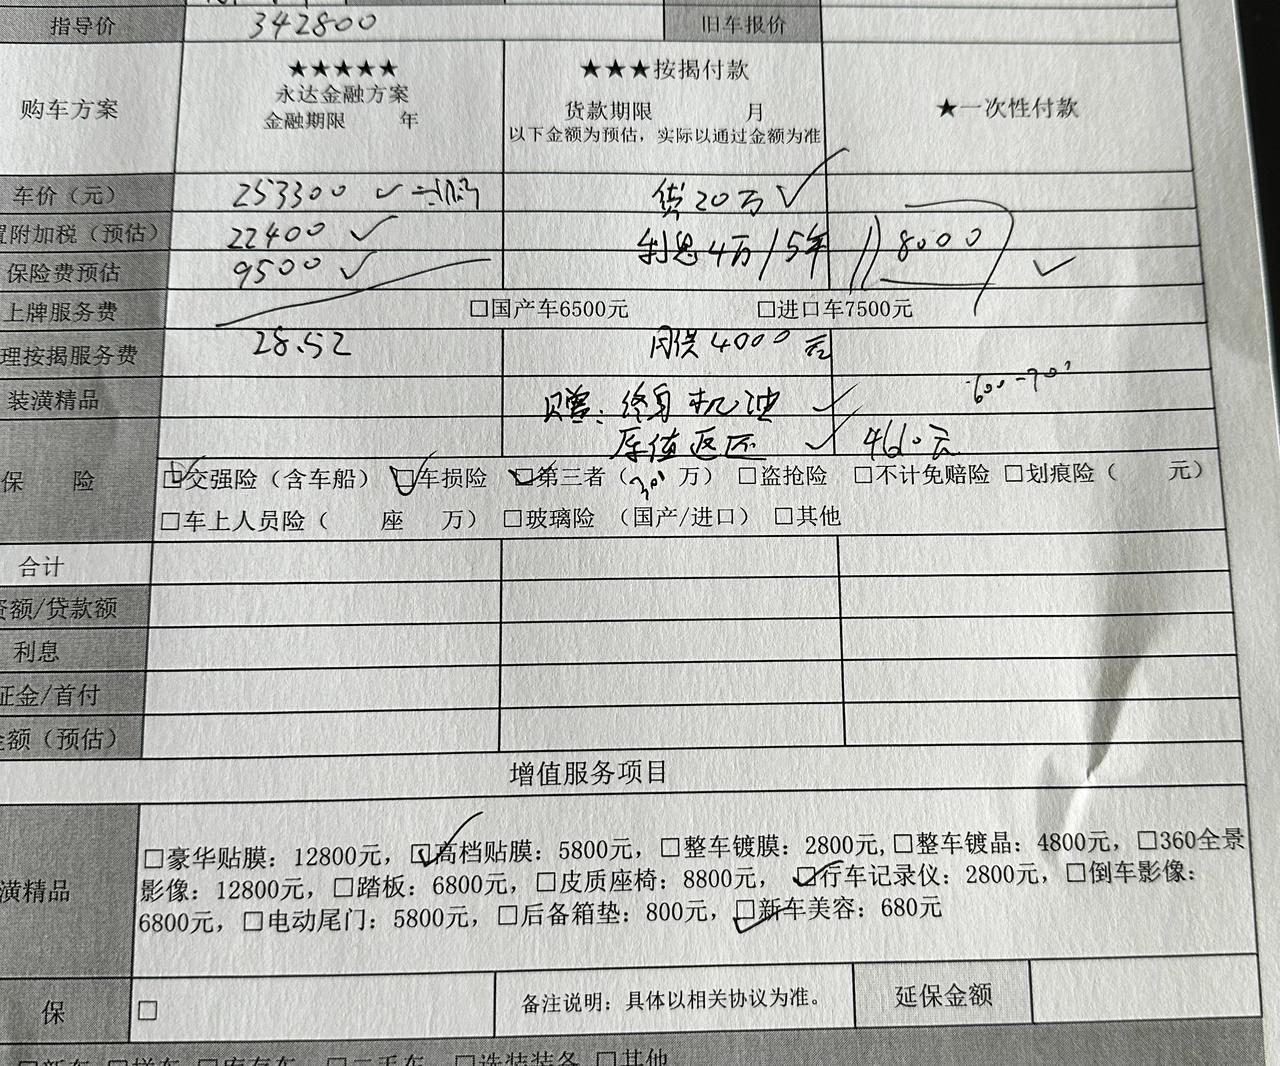 指导价 342800 旧车报价
★★★★★ ★★★按揭付款
永达金融方案
购车方案 金融期限 年 货款期限 月 ★一次性付款
以下金额为预估，实际以通过金额为准
车价（元） 253300 贷20万
置附加税（预估） 22400 利息4万/5年 8000
保险费预估 9500
上牌服务费 □国产车6500元 □进口车7500元
理按揭服务费 28.52 月供4000元
装潢精品 赠：终身机油 600-700
原值返还 460元
保 险 □交强险（含车船）□车损险 □第三者（300万）□盗抢险 □不计免赔险 □划痕险（ 元）
□车上人员险（ 座 万）□玻璃险 （国产/进口） □其他
合计
资额/贷款额
利息
证金/首付
金额（预估）
增值服务项目
□豪华贴膜：12800元，□高档贴膜：5800元，□整车镀膜：2800元，□整车镀晶：4800元，□360全景
潢精品 影像：12800元，□踏板：6800元，□皮质座椅：8800元， □行车记录仪：2800元，□倒车影像：
6800元，□电动尾门：5800元，□后备箱垫：800元，□新车美容：680元
保 □ 备注说明：具体以相关协议为准。 延保金额
□新车 □样车 □库存车 □二手车 □选装装备 □其他